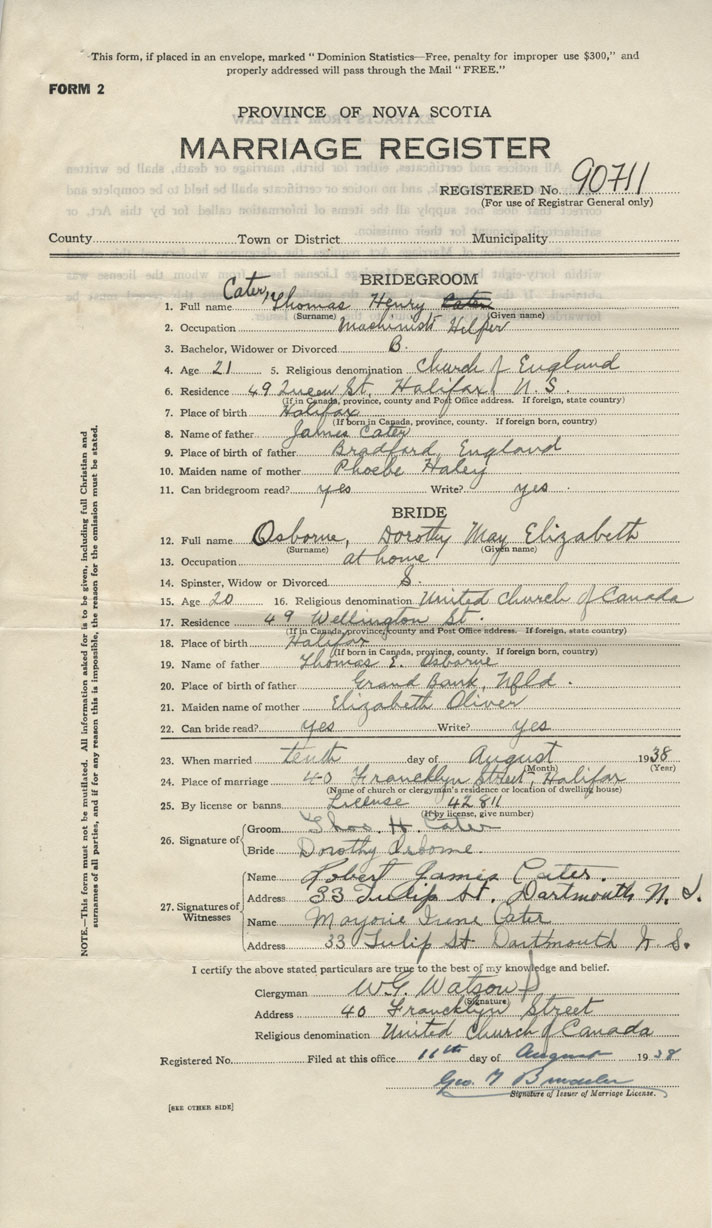 This form, if placed in an envelope, marked "Dominion Statistics—Free, penalty for improper use $300," and
properly addressed will pass through the Mail "FREE."
FORM 2
PROVINCE OF NOVA SCOTIA
MARRIAGE REGISTER
REGISTERED No. 90711
(For use of Registrar General only)
County Town or District Municipality
BRIDEGROOM
Cater,
1. Full name Thomas Henry Cater
(Surname) (Given name)
2. Occupation Machinist Helper
3. Bachelor, Widower or Divorced B.
4. Age 21 5. Religious denomination Church of England
6. Residence 49 Queen St, Halifax, N.S.
(If in Canada, province, county and Post Office address. If foreign, state country)
7. Place of birth Halifax
(If born in Canada, province, county. If foreign, county)
8. Name of father James Cater
9. Place of birth of father Bradford, England
10. Maiden name of mother Phoebe Haley
11. Can bridegroom read? yes Write? yes.
BRIDE
12. Full name Osborne, Dorothy May Elizabeth
(Surname) (Given name)
13. Occupation at home
14. Spinster, Widow or Divorced S.
15. Age 20 16. Religious denomination United Church of Canada
17. Residence 49 Wellington St.
(If in Canada, province, county and Post Office address. If foreign, state country)
18. Place of birth Halifax
(If born in Canada, province, county. If foreign, county)
19. Name of father Thomas E. Osborne
20. Place of birth of father Grand Bank, Nfld.
21. Maiden name of mother Elizabeth Oliver
22. Can bride read? yes Write? yes
23. When married tenth day of August 1938
(Month) (Year)
24. Place of marriage 40 Francklyn Street, Halifax
(Name of church or clergyman's residence or location of dwelling house)
25. By license or banns License 42811
(If by license, give number)
26. Signature of
Groom Thos. H. Cater
Bride Dorothy Osborne.
27. Signatures of Witnesses
Name Robert James Cater.
Address 33 Tulip St. Dartmouth N.S.
Name Marjorie Irene Cater
Address 33 Tulip St Dartmouth N.S.
I certify the above stated particulars are true to the best of my knowledge and belief.
Clergyman W.G. Watson
(Signature)
Address 40 Francklyn Street
Religious denomination United Church of Canada
Registered No. Filed at this office 11th day of August 1938
Geo.
Signature of Issuer of Marriage License.
[SEE OTHER SIDE]
NOTE.—This form must not be mutilated. All information asked for is to be given, including full Christian and
surnames of all parties, and if for any reason this is impossible, the reason for the omission must be stated.